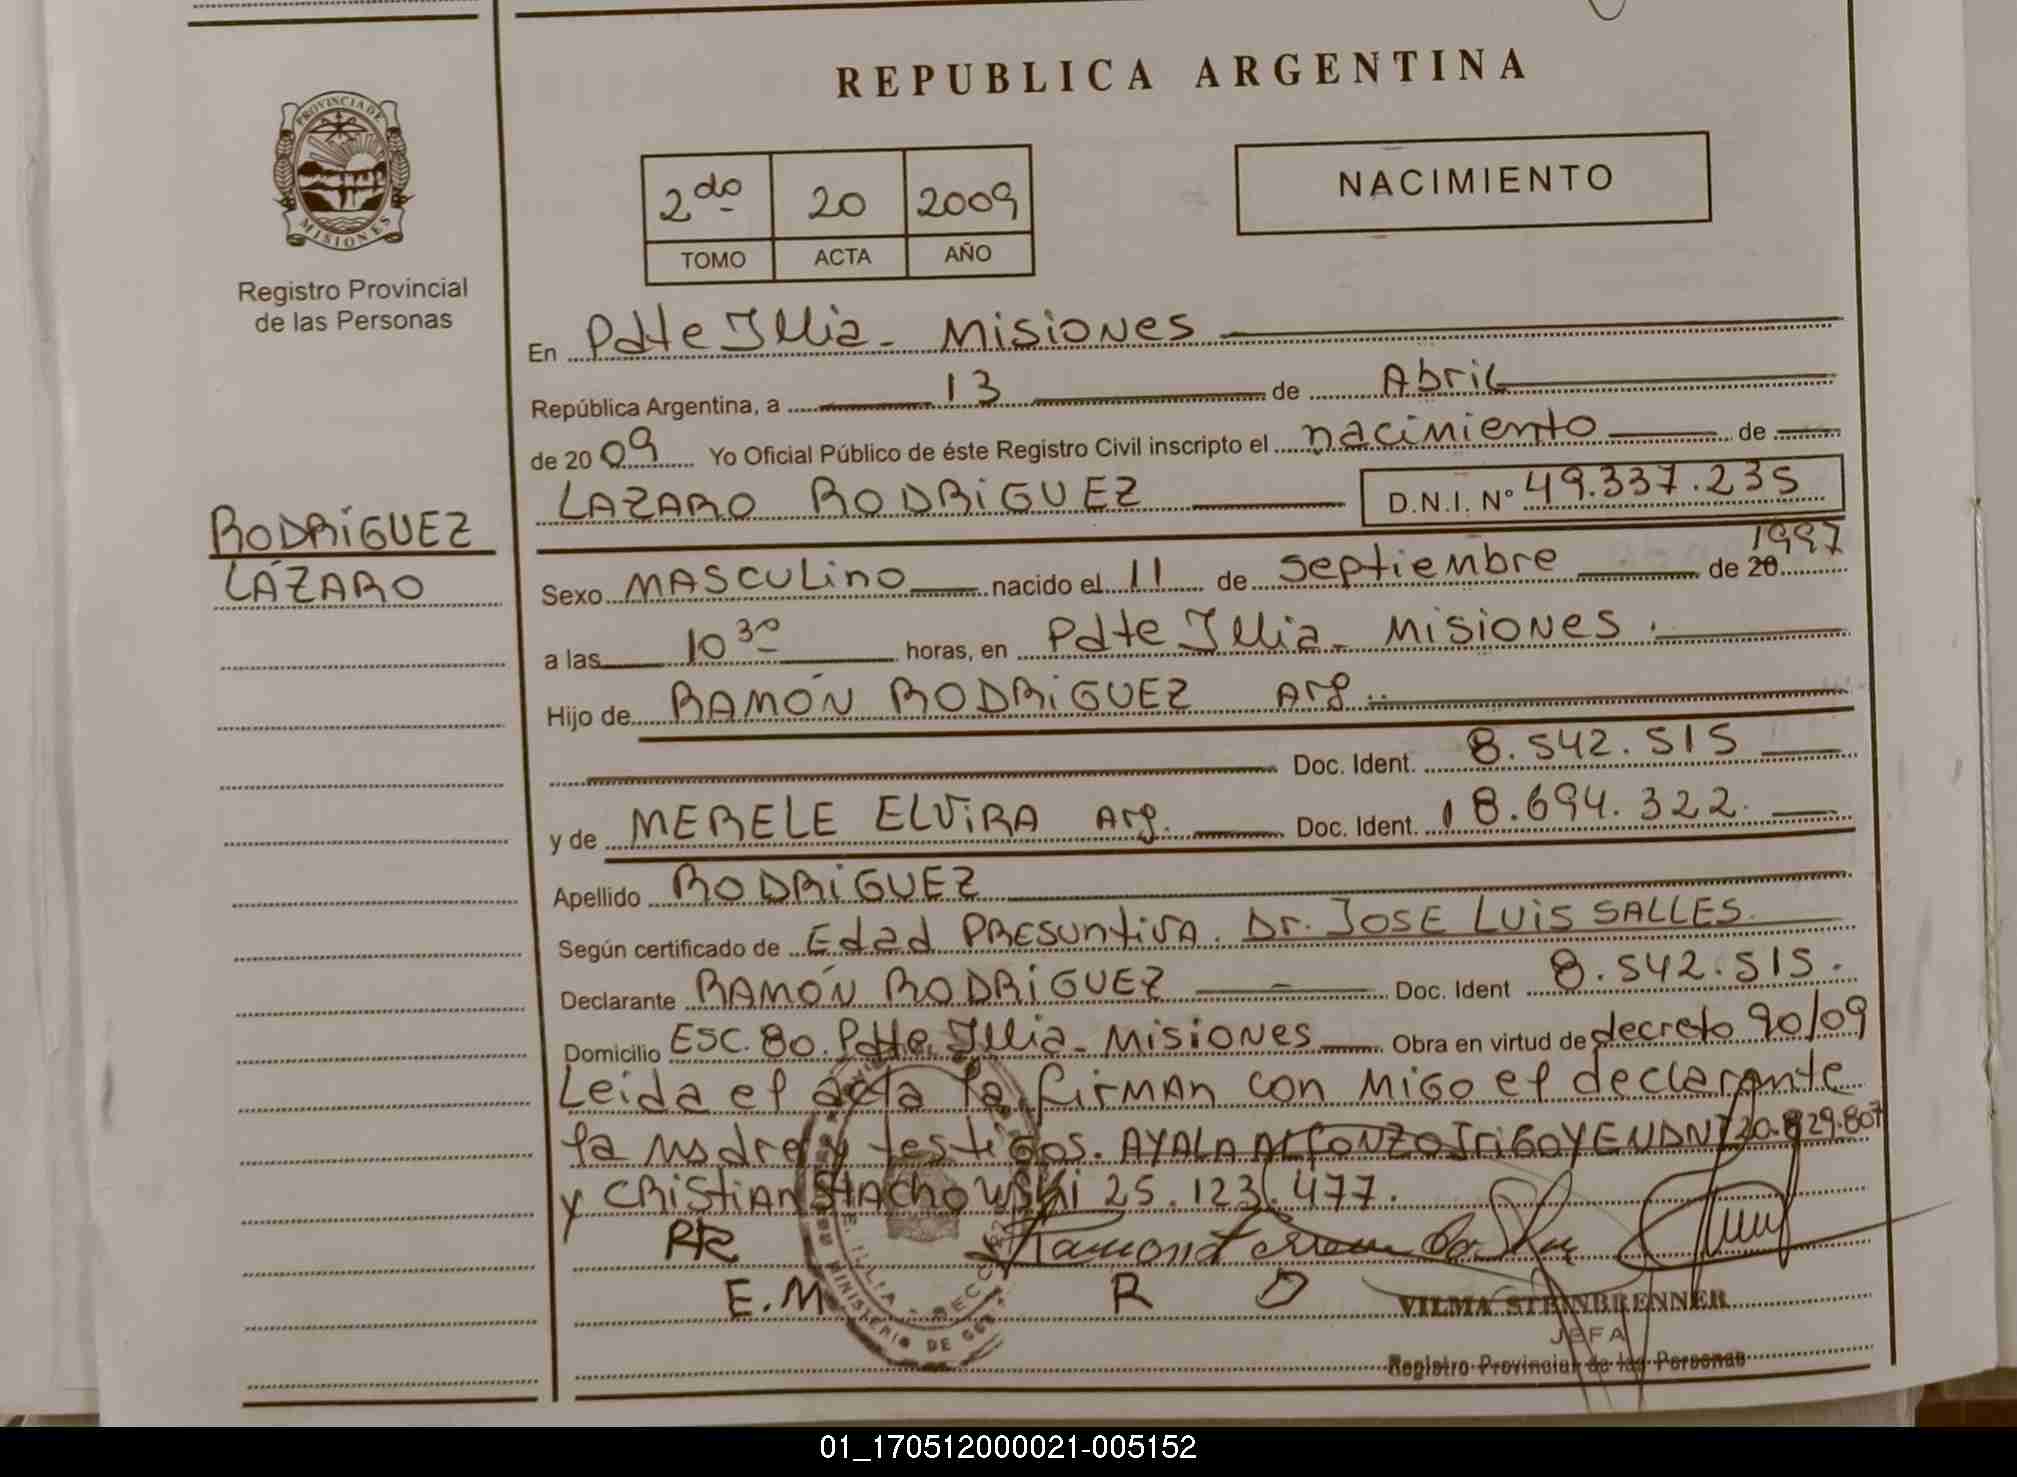 REPUBLICA ARGENTINA
PROVINCIA DE
MISIONES
Registro Provincial
de las Personas
2do 20 2009
TOMO ACTA AÑO
NACIMIENTO
En Pdte Illia - Misiones
República Argentina, a 13 de Abril
de 20 09 Yo Oficial Público de éste Registro Civil inscripto el nacimiento de
LAZARO RODRIGUEZ D.N.I. N° 49.337.235
RODRIGUEZ
LÁZARO
Sexo MASCULINO nacido el 11 de Septiembre de 20 1997
a las 10 30 horas, en Pdte Illia - Misiones.
Hijo de RAMÓN RODRIGUEZ Arg.
Doc. Ident. 8.542.515
y de MERELE ELVIRA Arg. Doc. Ident. 18.694.322.
Apellido RODRIGUEZ
Según certificado de Edad PRESUNTIVA. Dr. JOSE LUIS SALLES
Declarante RAMÓN RODRIGUEZ Doc. Ident 8.542.515.
Domicilio ESC. 80. Pdte. Illia - Misiones Obra en virtud de decreto 90/09
Leida el acta la firman con migo el declarante
la madre y testigos. AYALA ALFONZO IRIGOYEN DNI 20.829.807
y CRISTIAN STACHOWSKI 25.123.477.
RR
E.M R D
VILMA STEINBRENNER
JEFA
Registro Provincial de las Personas
MINISTERIO DE
01_170512000021-005152